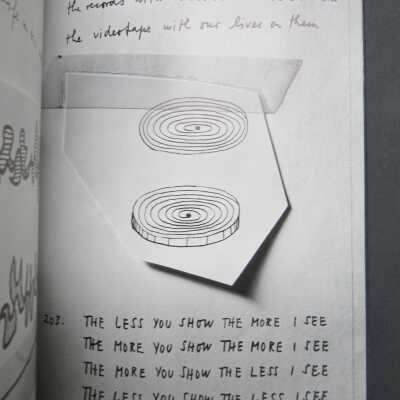 the records with
the videotape with our lives on them
203. THE LESS YOU SHOW THE MORE I SEE
THE MORE YOU SHOW THE MORE I SEE
THE MORE YOU SHOW THE LESS I SEE
THE LESS YOU SHOW THE LESS I SEE